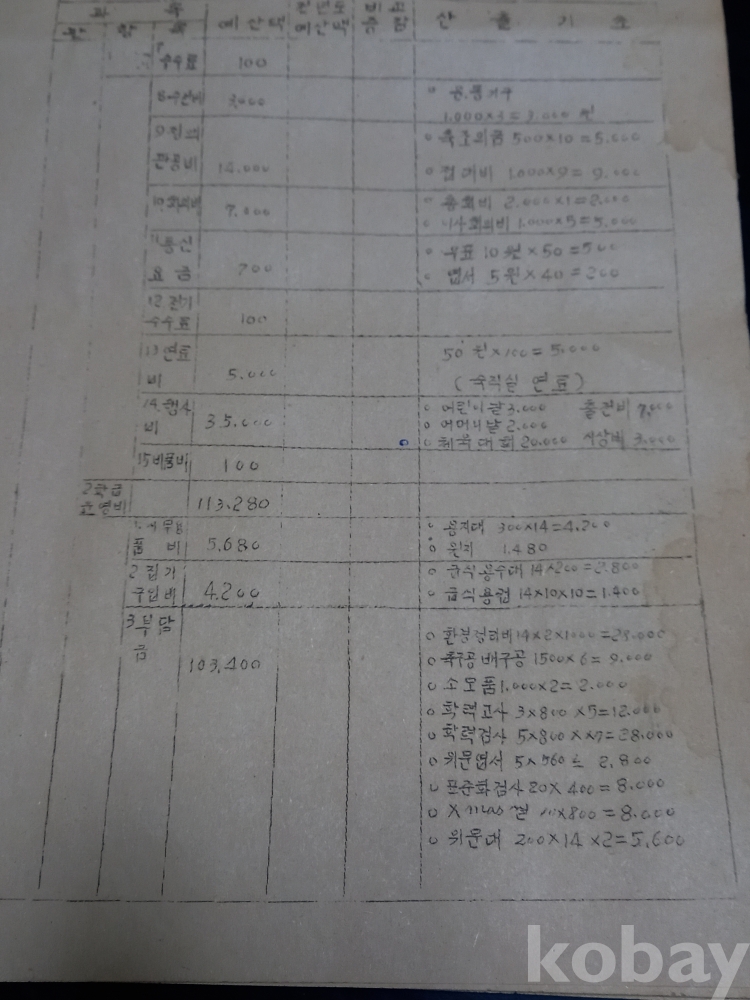 과 목
예산액 전년도 예산액 비교 증감 산출기초
관 항 목
수수료 100
8수선비 3,000 ㅇ 공.통기구
1.000×3=3.000 원
ㅇ 축조의금 500×10=5.000
관공비 14.000 ㅇ 접대비 1.000×9=9.000
10.회의비 7,000 ㅇ 총회비 2.000×1=2.000
ㅇ 이사회의비 1.000×5=5.000
11통신 ㅇ 우표 10원×50=500
요금 700 ㅇ 엽서 5원×40=200
12.전기
수수료 100
13연료 50원×100=5.000
비 5.000 (숙직실 연료)
14.행사 ㅇ 어린이날 3.000 출전비 7,000
비 35.000 ㅇ 어머니날 2.000
ㅇ 체육대회 20.000 시상비 3.000
15비품비 100
2학급
운영비 113.280
1.사무용 ㅇ 용지대 300×14=4.200
품 비 5.680 ㅇ 원지 1.480
2집기 ㅇ 급식용수대 14×200=2.800
구입비 4.200 ㅇ 급식용컵 14×10×10=1.400
3부담
금 103,400 ㅇ 환경정리비 14×2×1000=28.000
ㅇ 축구공배구공 1500×6=9.000
ㅇ 소모품 1.000×2=2.000
ㅇ 학력고사 3×800×5=12.000
ㅇ 학력검사 5×800××7=28.000
ㅇ 위문엽서 5×560=2.800
ㅇ 표준화검사 20×400=8.000
ㅇ Xmas씰 ×800=8.000
ㅇ 위문대 200×14×2=5,600
kobay